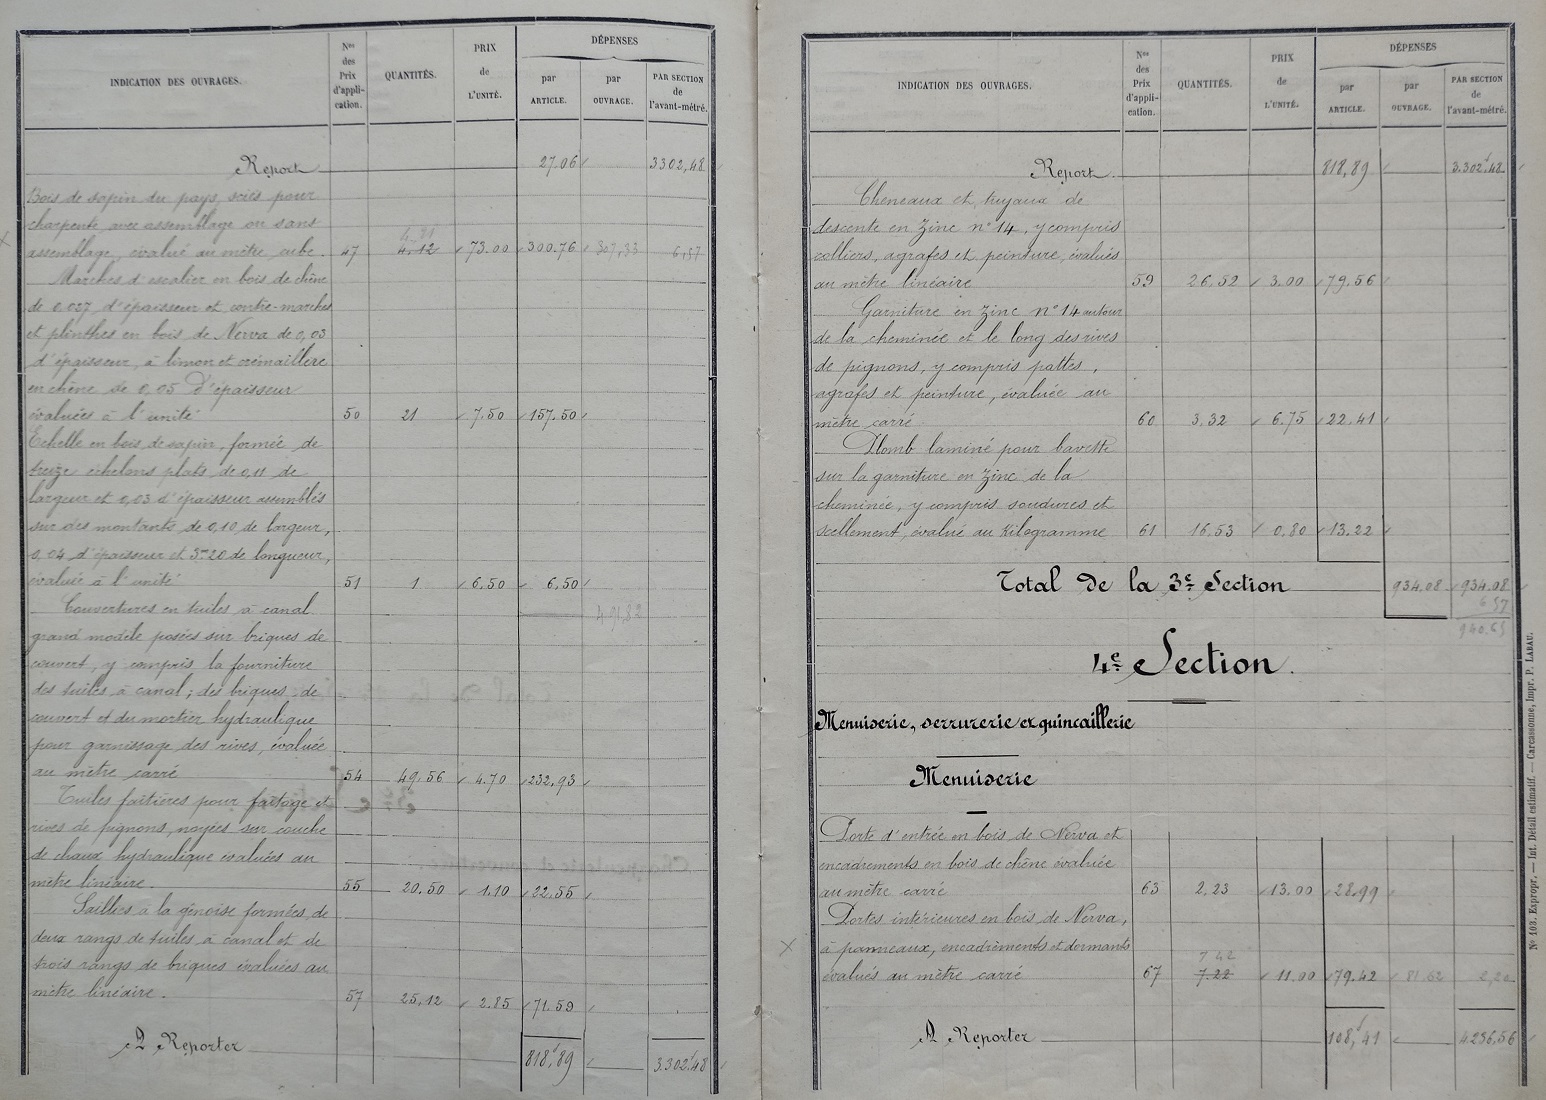 INDICATION DES OUVRAGES.
Nos des Prix d'appli-cation.
QUANTITÉS.
PRIX de L'UNITÉ.
DÉPENSES
par ARTICLE.
par OUVRAGE.
PAR SECTION de l'avant-métré.
Report 27.06 3302,48
Bois de sapin du pays, sciés pour
charpente, avec assemblage ou sans
4.21
assemblage, évalué au mètre cube. 47 4.12 73.00 300.76 307,33 6,57
Marches d'escalier en bois de chêne
de 0,037 d'épaisseur et contre-marches
et plinthes en bois de Nerva de 0,03
d'épaisseur, à limon et crémaillère
en chêne de 0,05 d'épaisseur
évaluées à l'unité 50 21 7.50 157.50
Echelle en bois de sapin, formée de
treize échelons plats de 0,11 de
largeur et 0,03 d'épaisseur assemblés
sur des montants de 0,10 de largeur,
0,04 d'épaisseur et 3m20 de longueur,
évaluée à l'unité 51 1 6.50 6.50
Couvertures en tuiles à canal 491,82
grand modèle posées sur briques de
couvert, y compris la fourniture
des tuiles à canal; des briques de
couvert et du mortier hydraulique
pour garnissage des rives, évaluée
au mètre carré 54 49,56 4.70 232,93
Tuiles faitières pour faitage et
rives de pignons, noyées sur couche
de chaux hydraulique évaluées au
mètre linéaire. 55 20.50 1.10 22.55
Saillies à la génoise formées de
deux rangs de tuiles à canal et de
trois rangs de briques évaluées au
mètre linéaire. 57 25,12 2.85 71.59
A Reporter 818f,89 3.302f48
INDICATION DES OUVRAGES.
Nos des Prix d'appli-cation.
QUANTITÉS.
PRIX de L'UNITÉ.
DÉPENSES
par ARTICLE.
par OUVRAGE.
PAR SECTION de l'avant-métré.
Report 818,89 3.302f48
Cheneaux et tuyaux de
descente en Zinc n° 14, y compris
colliers, agrafes et peinture, évalués
au mètre linéaire 59 26.52 3.00 79.56
Garniture en Zinc n° 14 autour
de la cheminée et le long des rives
de pignons, y compris pattes,
agrafes et peinture, évaluée au
mètre carré 60 3.32 6.75 22.41
Plomb laminé pour bavette
sur la garniture en Zinc de la
cheminée, y compris soudures et
scellement, évalué au Kilogramme 61 16,53 0,80 13.22
Total de la 3e Section 934.08 934.08
6 57
940.65
4e Section.
Menuiserie, serrurerie et quincaillerie
Menuiserie
Porte d'entrée en bois de Nerva et
encadrements en bois de chêne évaluée
au mètre carré 63 2,23 13.00 28.99
Portes intérieures en bois de Nerva,
à panneaux, encadrements et dormants
7 42
évalués au mètre carré 67 7.22 11.00 79.42 81.62 2,20
A Reporter 108f,41 4.236,56
N° 103. Expropr. — Int. Détail estimatif. — Carcassonne, Impr. P. LABAU.